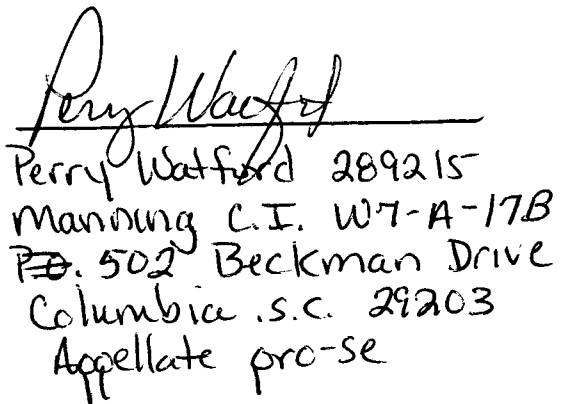 Perry Watford
Perry Watford 289215
Manning C.I. W7-A-17B
P.O. 502 Beckman Drive
Columbia .S.C. 29203
Appellate pro-se